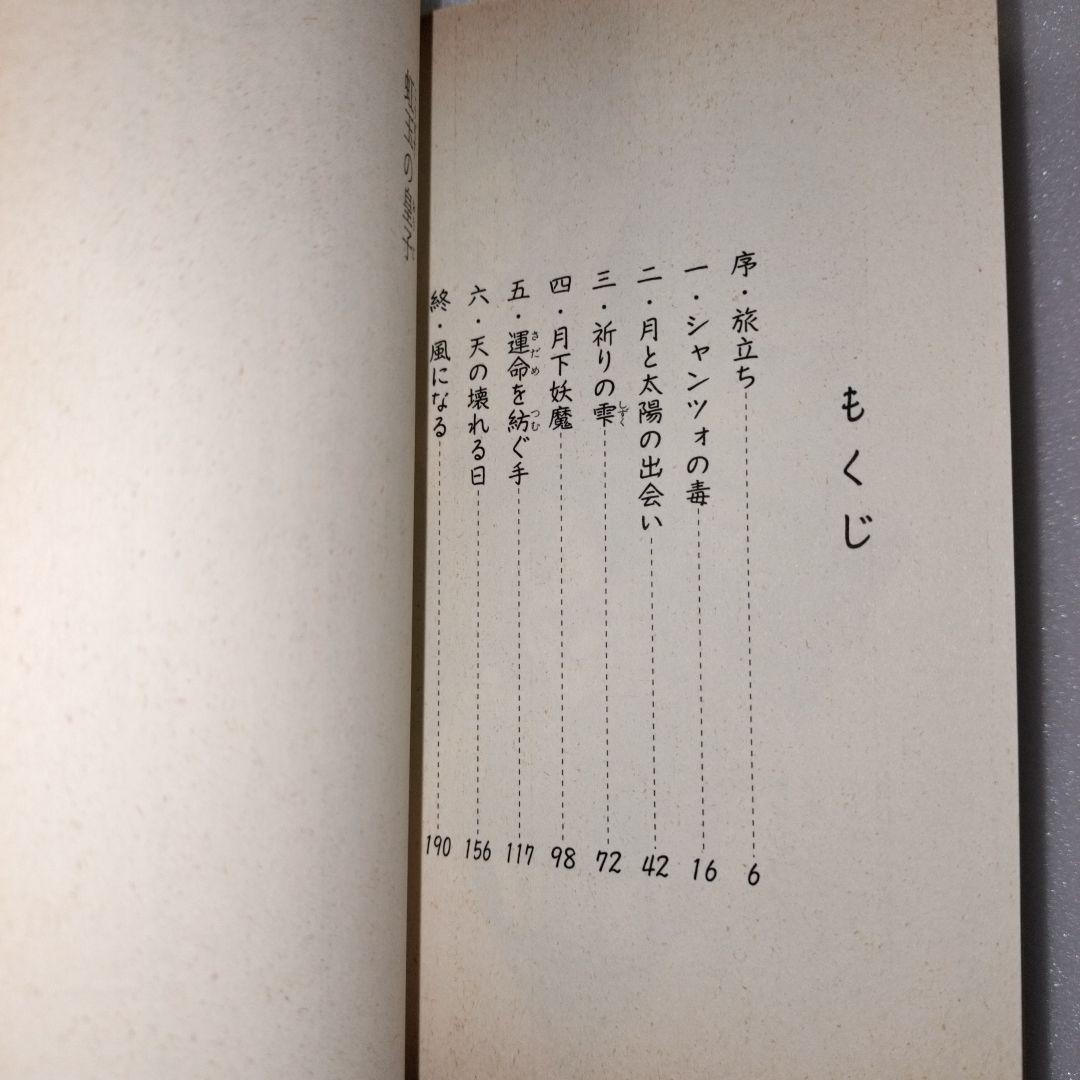 もくじ
序・旅立ち 6
一・シャンツォの毒 16
二・月と太陽の出会い 42
三・祈りの雫 72
しずく
四・月下妖魔 98
五・運命を紡ぐ手 117
さだめ
つむ
六・天の壊れる日 156
終・風になる 190